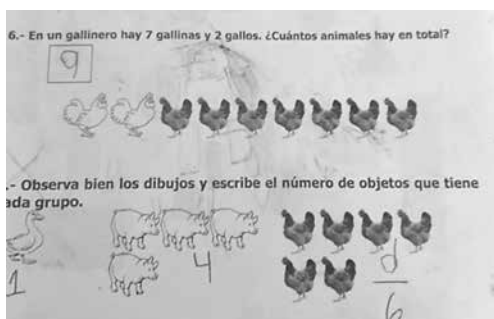 6.- En un gallinero hay 7 gallinas y 2 gallos. ¿Cuántos animales hay en total?
9
.- Observa bien los dibujos y escribe el número de objetos que tiene
ada grupo.
1
4
d
6